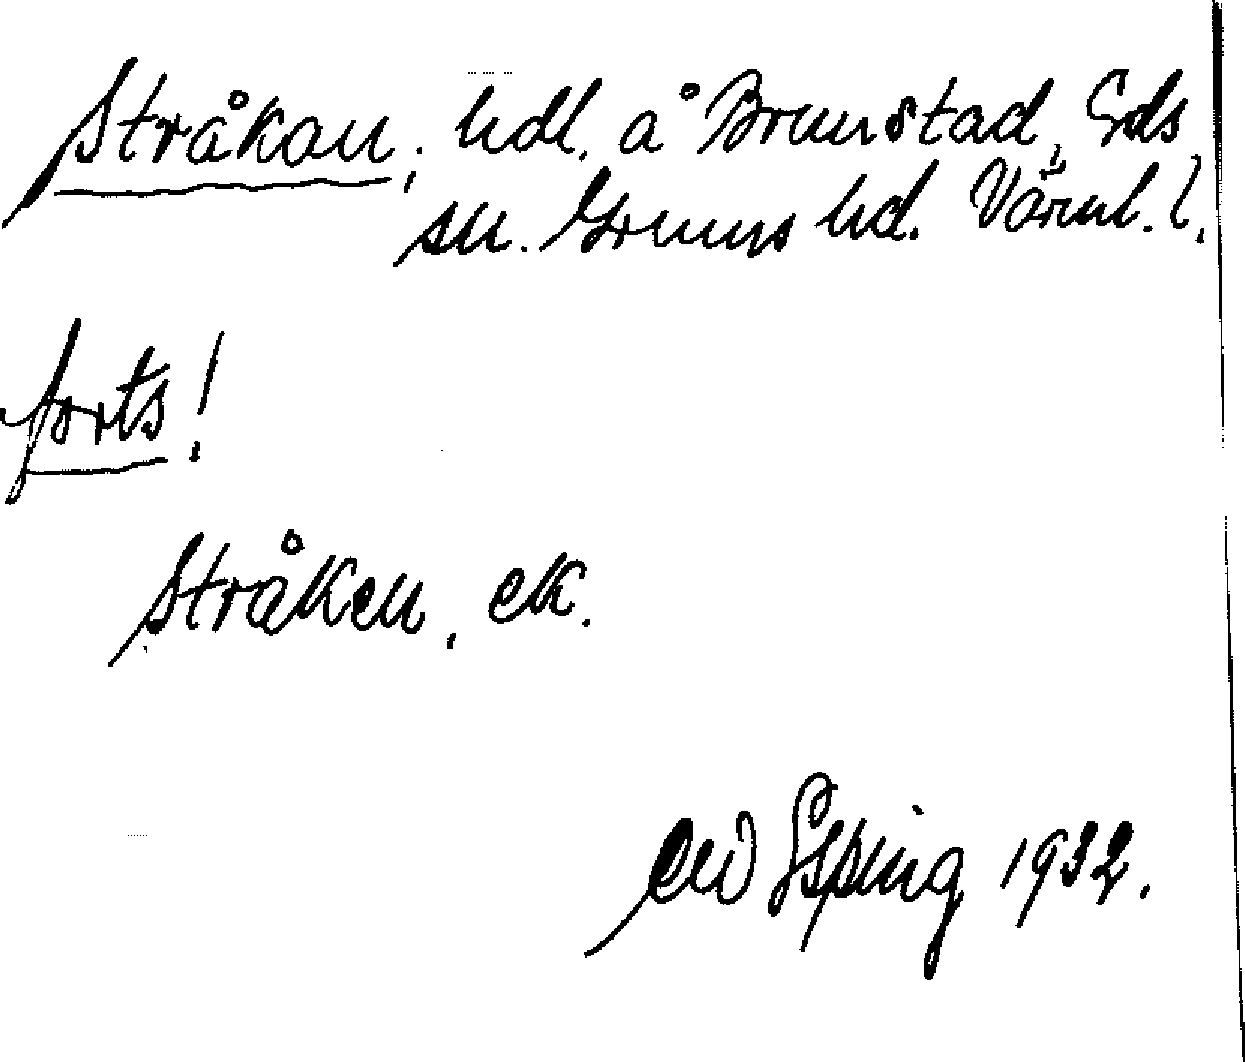 Stråkan, hdl. å Brunstad, Eds
sn. Grums hd. Värml. l.
forts!
Stråken, ek.
Ewd Esping 1932.